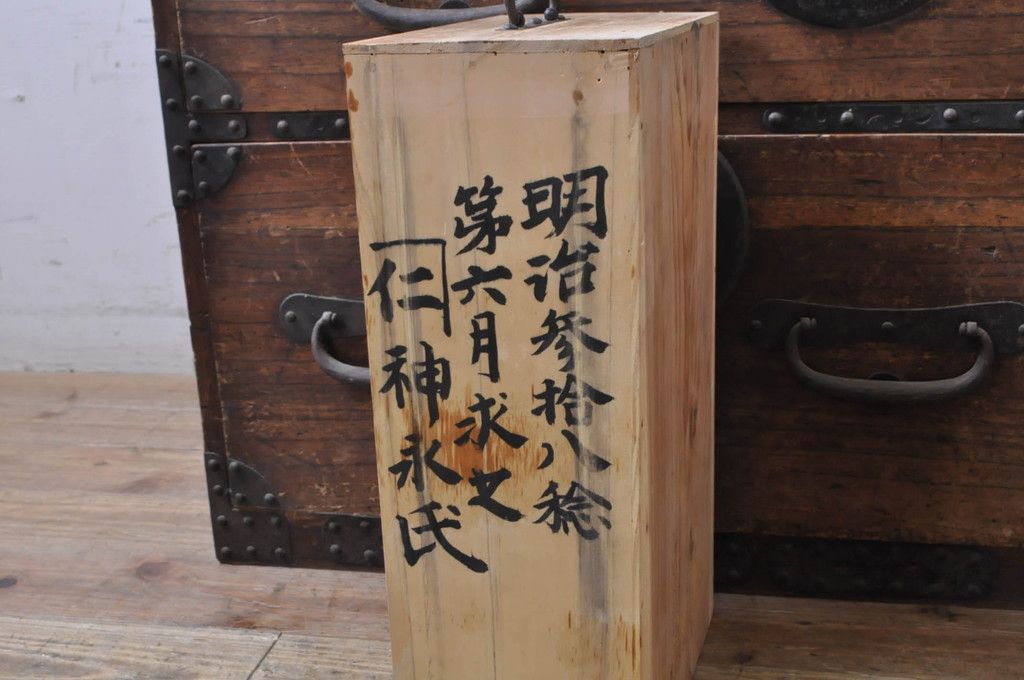 明治参拾八稔
第六月求之
仁神永氏